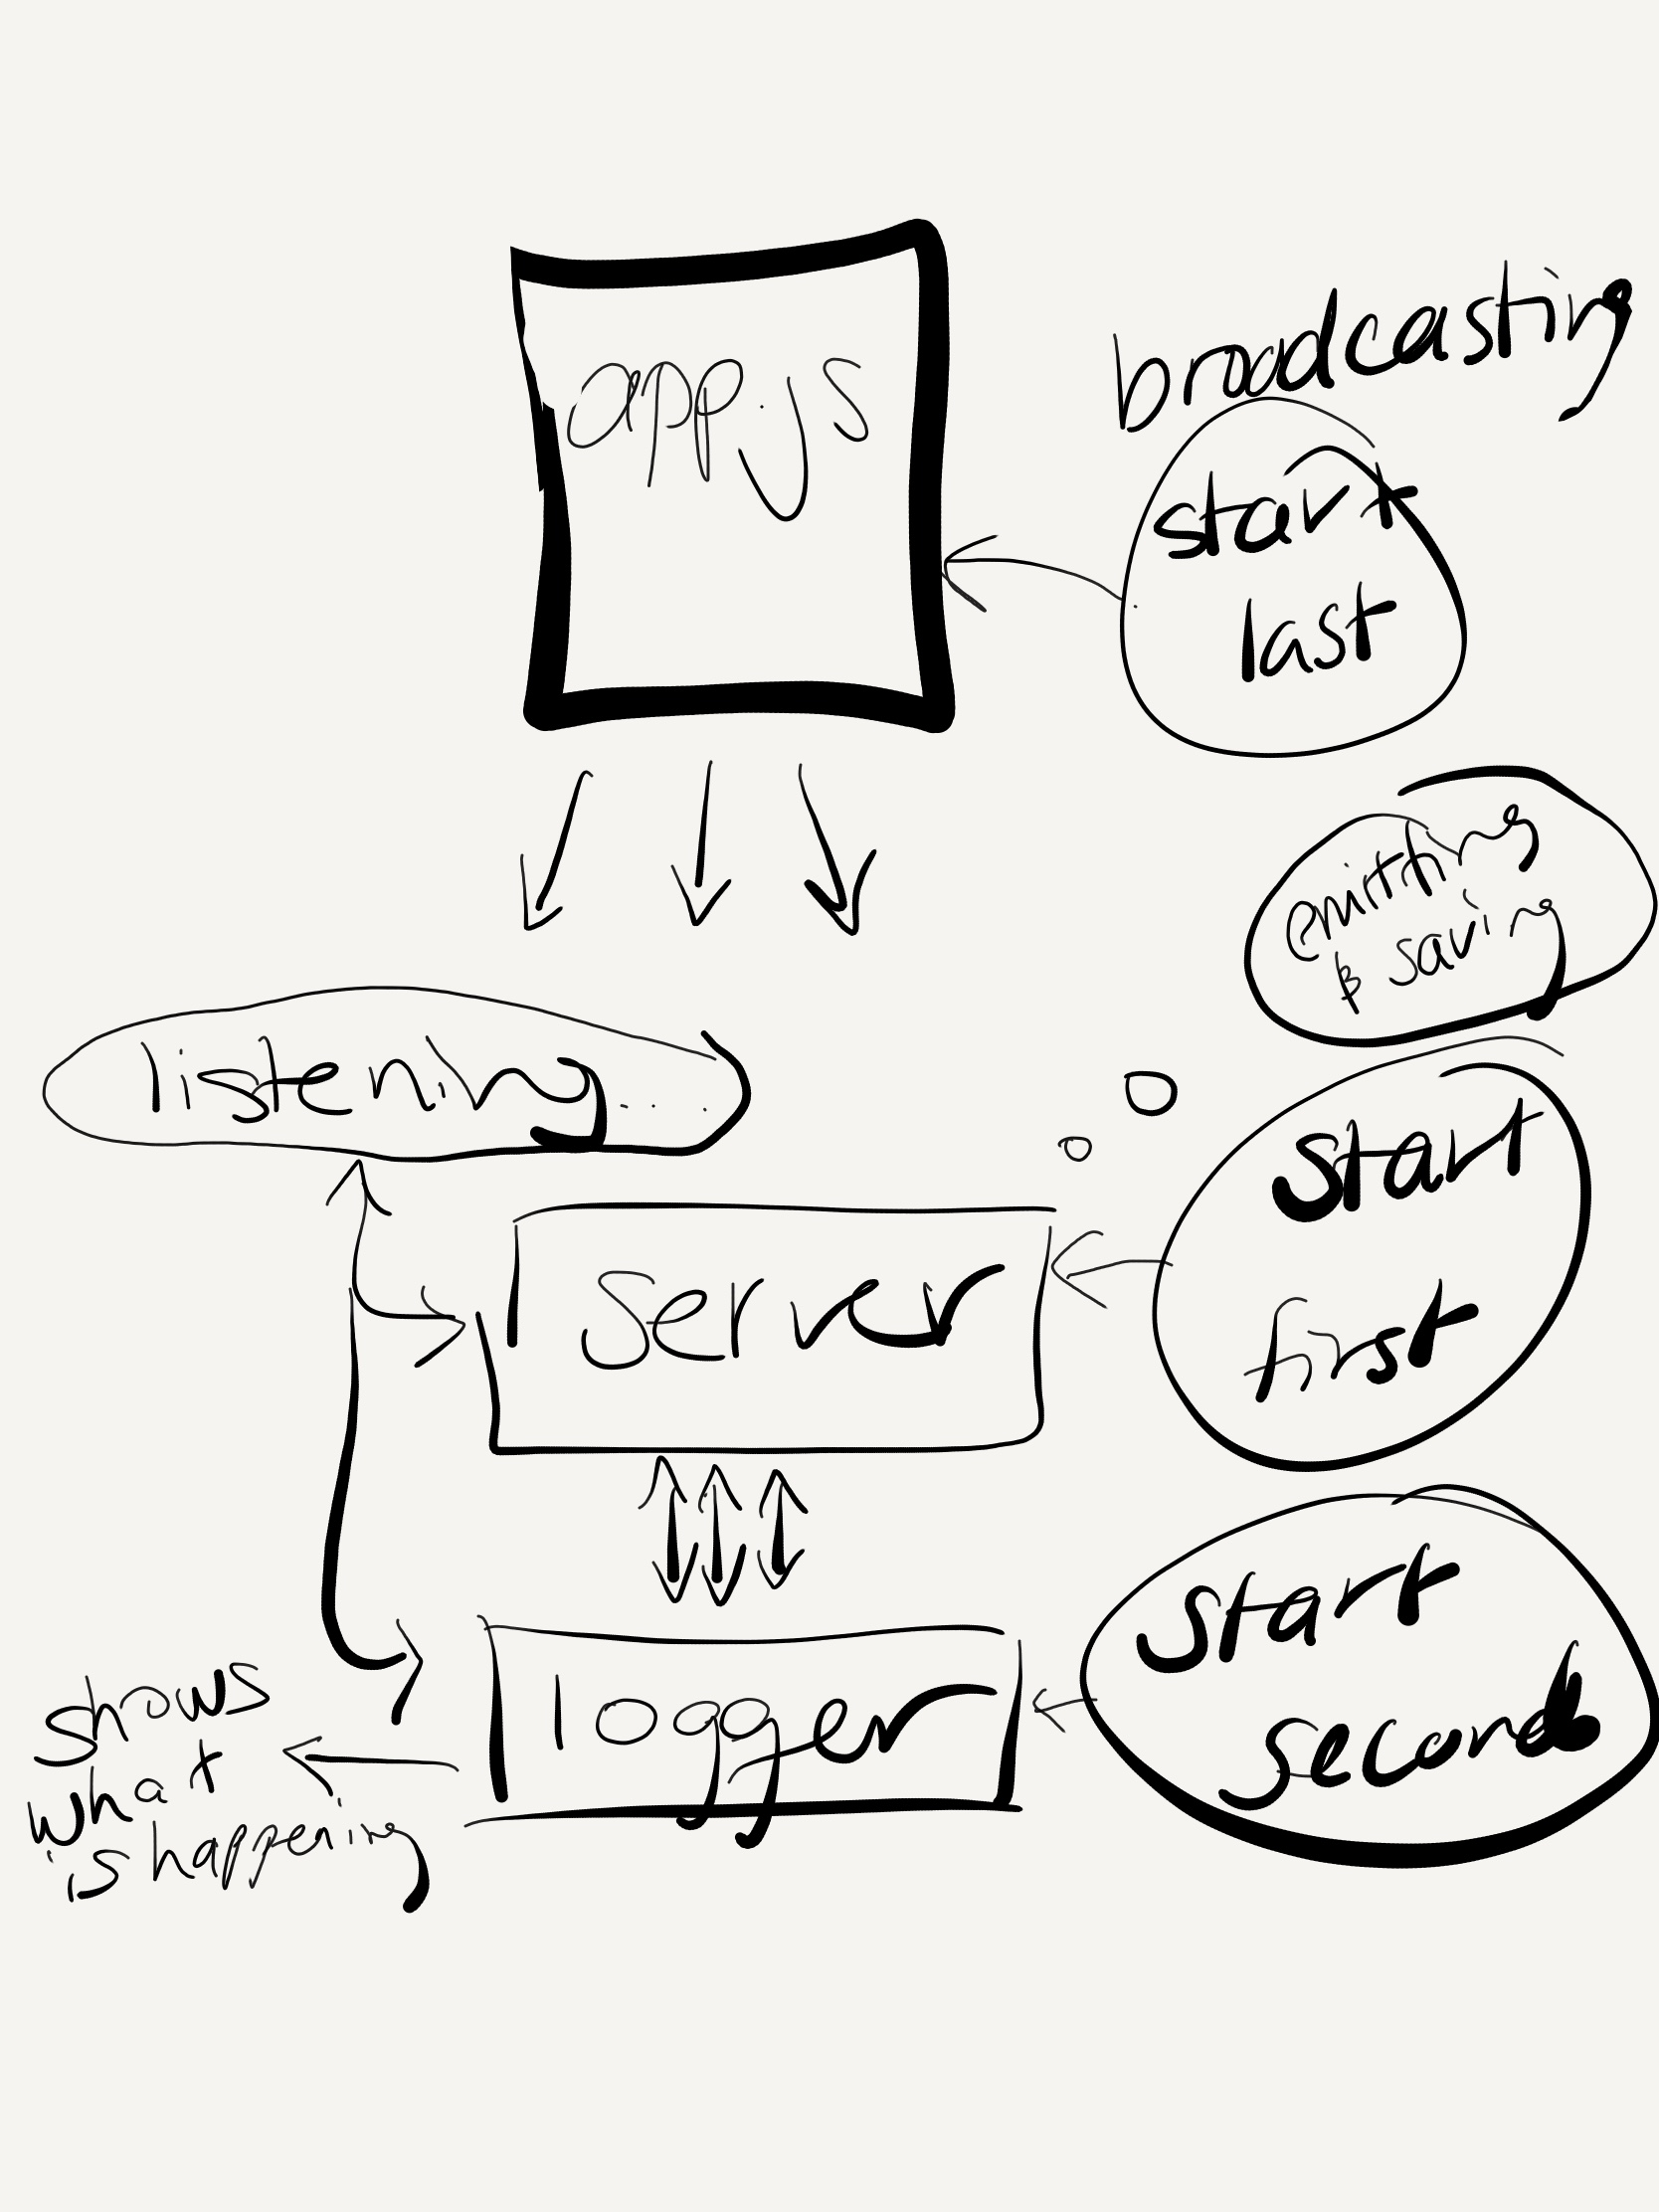 app.js
broadcasting
start
last
emitting
& saving
listening...
start
first
Server
Start
Second
logger
shows
what
is happening